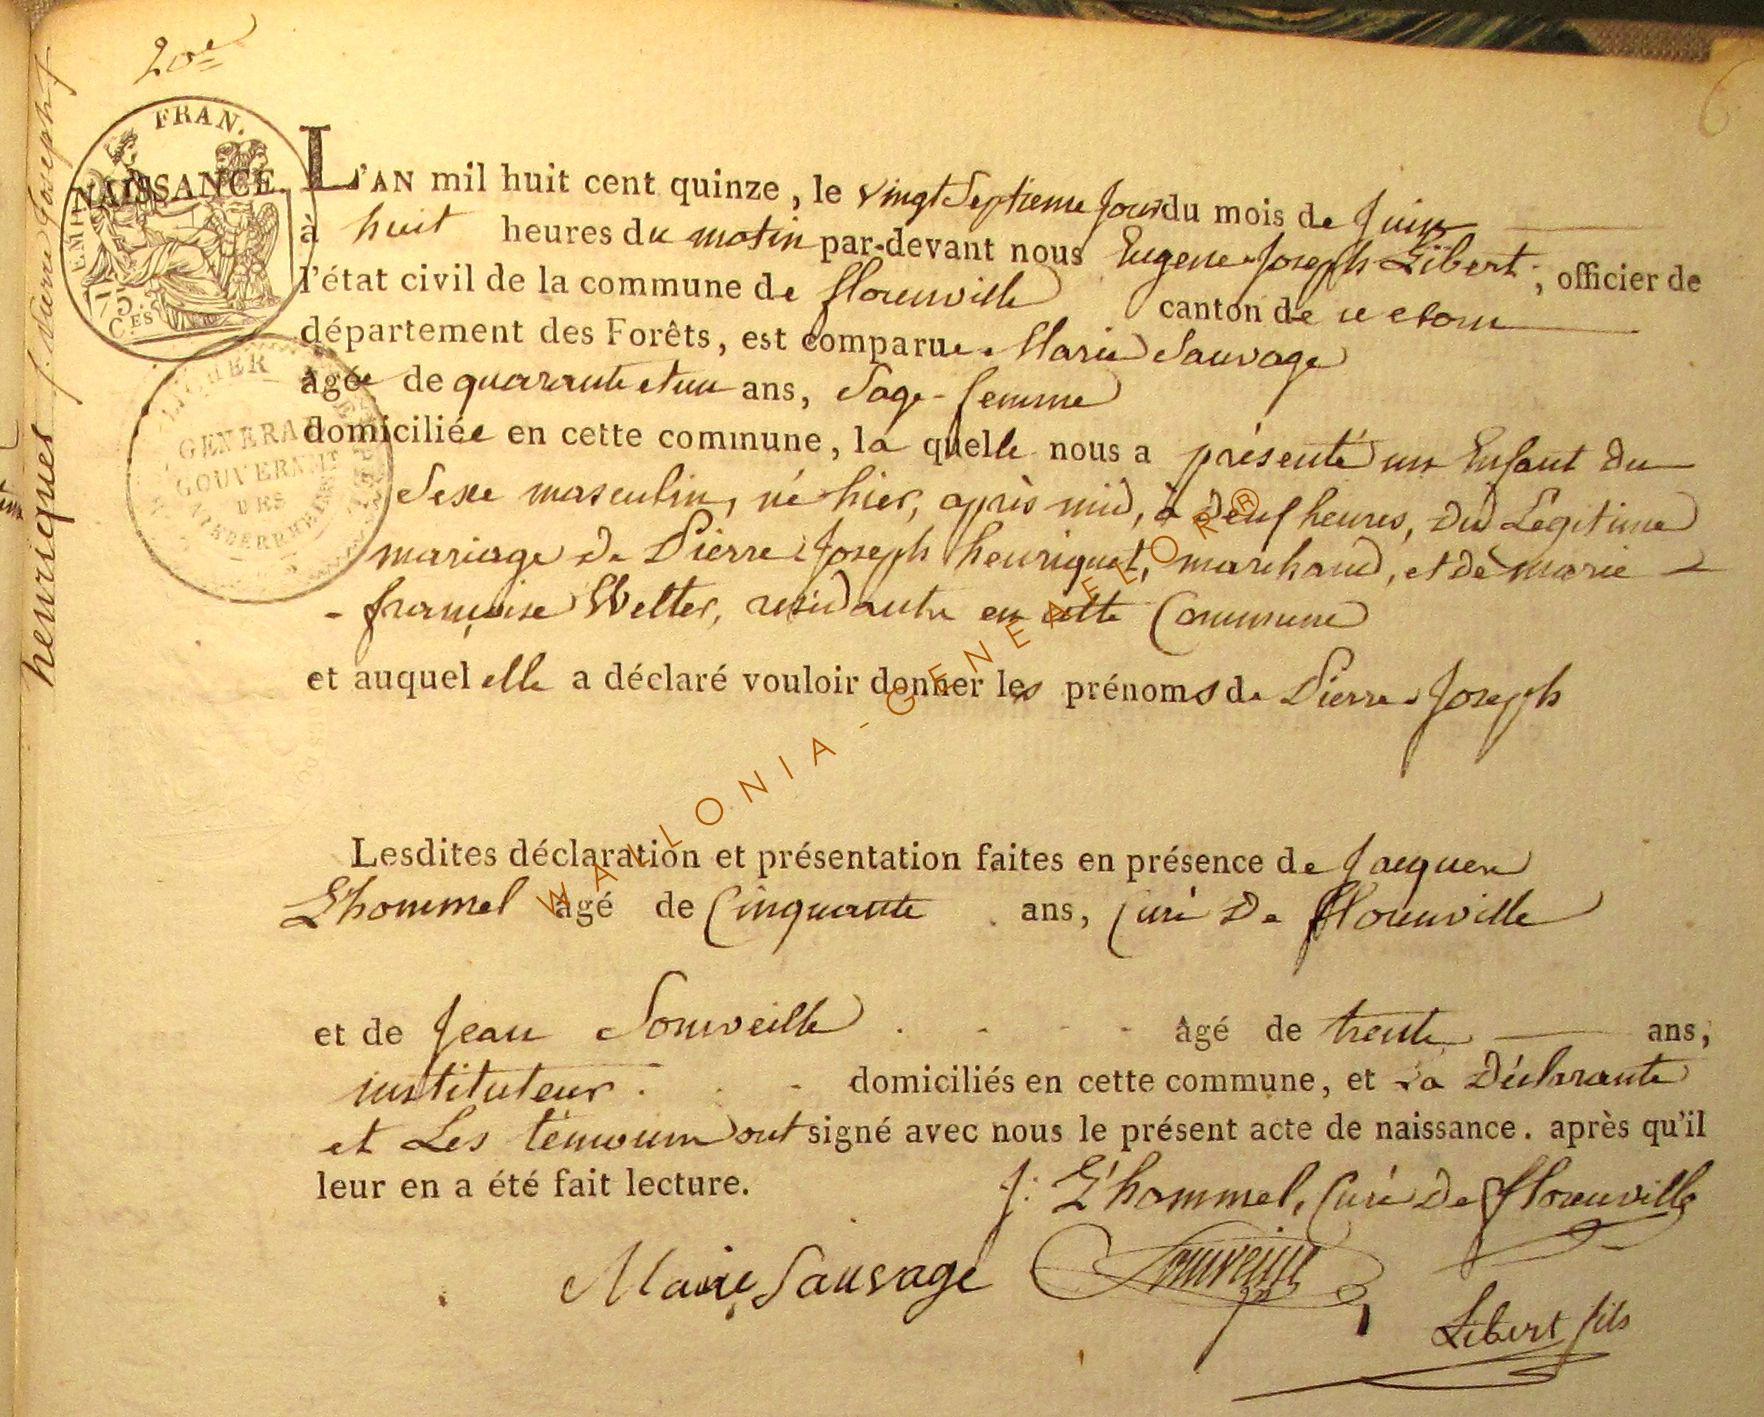 20e
FRAN.
EMP.
75
C.ES
NAISSANCE.
GENERAL
GOUVERNEMT
DES
NIEDERRHEIN
henriques
Pierre Joseph
L'AN mil huit cent quinze, le vingt Septieme Jour du mois de Juin
à huit heures du matin par-devant nous Eugene Joseph Libert, officier de
l'état civil de la commune de florenville canton de
département des Forêts, est comparue Marie Sauvage
âgée de quarante et un ans, Sage-femme
domiciliée en cette commune, la quelle nous a présenté un Enfant du
Sexe masculin, né hier, après midi, à neuf heures, du Légitime
mariage de Pierre Joseph henriquet, marchand, et de marie
françoise Welter, residante en cette Commune
et auquel elle a déclaré vouloir donner les prénoms de Pierre Joseph
Lesdites déclaration et présentation faites en présence de Jacques
L'hommel âgé de Cinquante ans, Curé De florenville
et de Jean Souveille âgé de trente ans,
instituteur domiciliés en cette commune, et La Déclarante
et Les témoins ont signé avec nous le présent acte de naissance. après qu'il
leur en a été fait lecture.
J: L'hommel, Curé De florenville
Marie Sauvage
Souveille
Libert fils
WALLONIA-GENEAELOR®